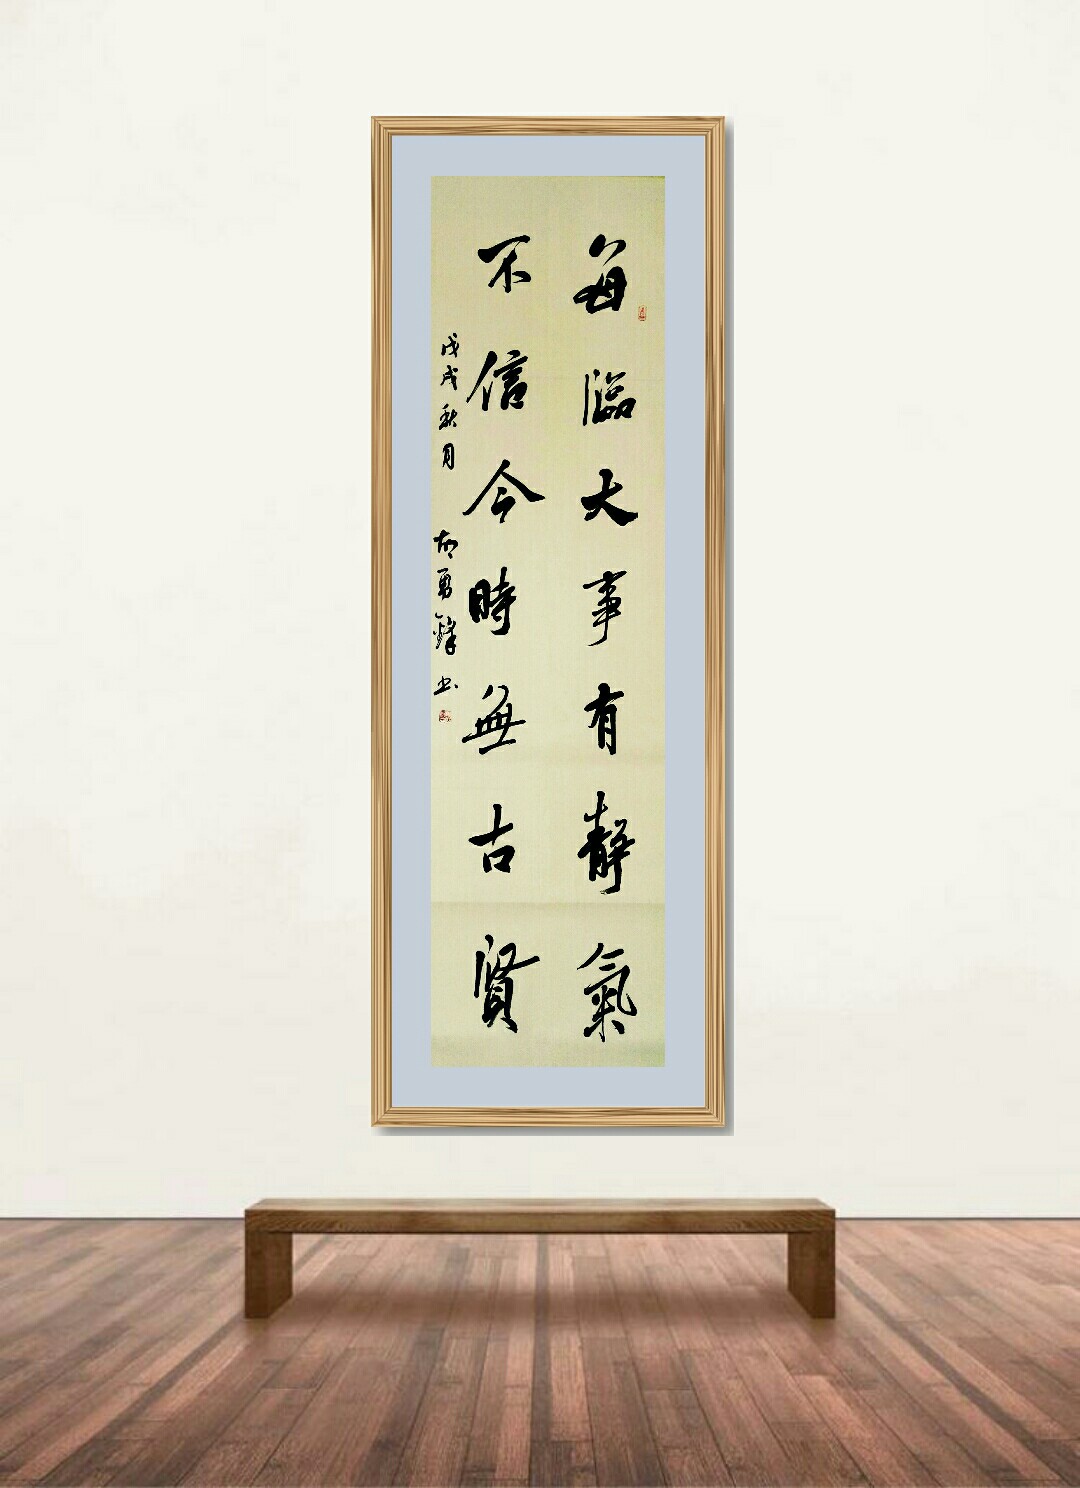 每臨大事有靜氣
不信今時無古賢
戊戌秋月 胡勇鋒书